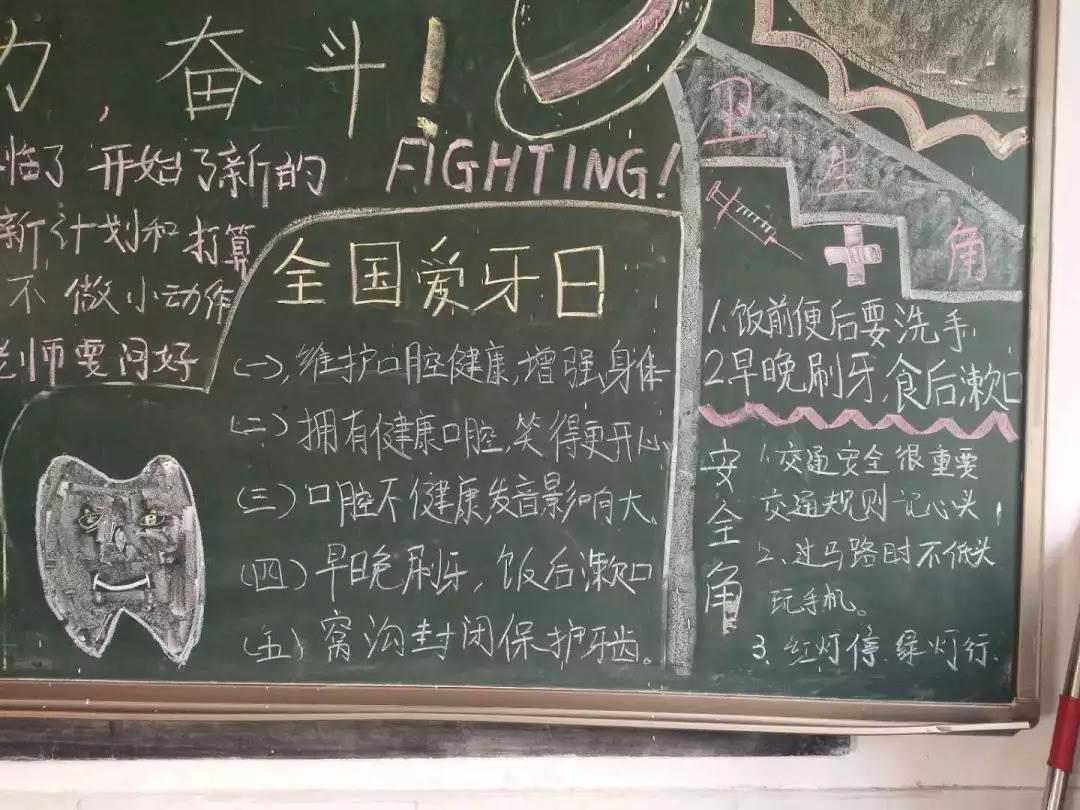 力，奋斗！
临了 开始了新的
FIGHTING!
新计划和打算
不做小动作
老师要问好
全国爱牙日
(一)，维护口腔健康，增强身体
(二) 拥有健康口腔，笑得更开心
(三) 口腔不健康，发音影响大。
(四) 早晚刷牙，饭后漱口
(五) 窝沟封闭保护牙齿。
卫生角
1.饭前便后要洗手
2.早晚刷牙，食后漱口
安全角
1.交通安全很重要
交通规则记心头
2、过马路时不低头
玩手机。
3、红灯停 绿灯行.